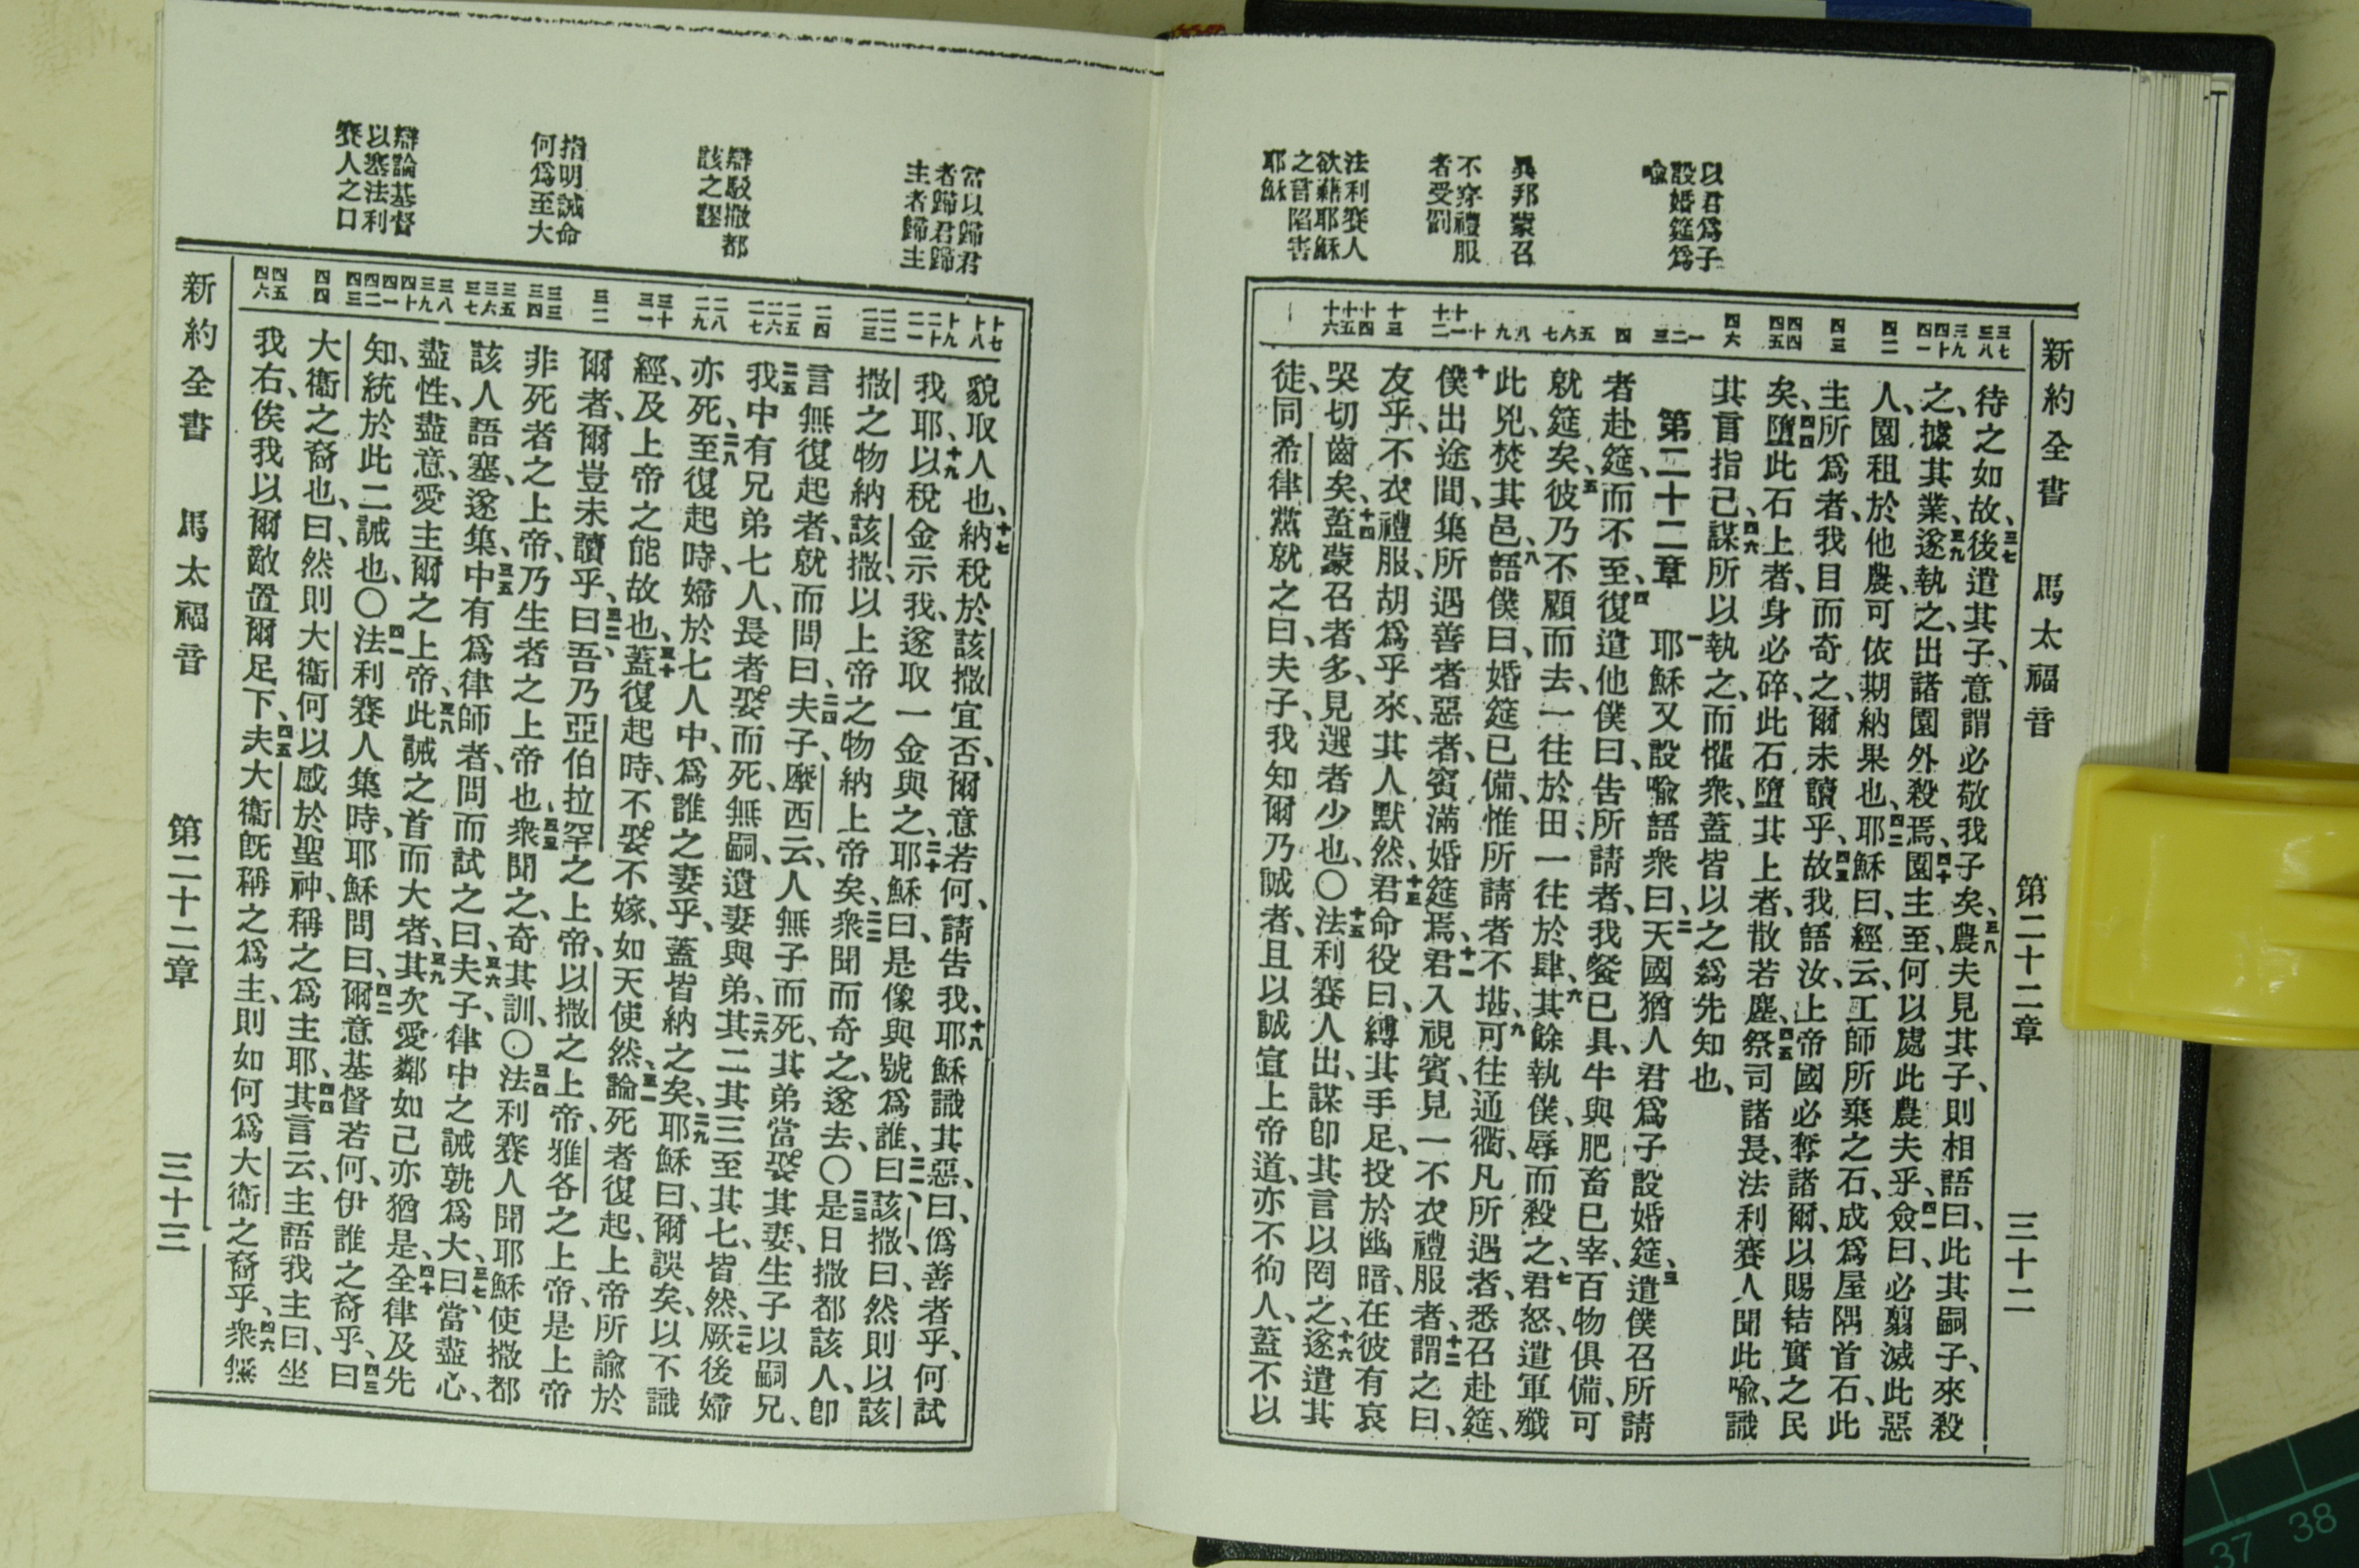 新約全書 馬太福音 第二十二章 三十二
以君爲子
設婚筵爲
喩
異邦蒙召
不穿禮服
者受罰
法利賽人
欲藉耶穌
之言陷害
耶穌
三七 三八 三九 四十 四一 四二 四三 四四 四五 四六 一 二 三 四 五 六 七 八 九 十 十一 十二 十三 十四 十五 十六
待之如故、三七後遣其子、意謂必敬我子矣、三八農夫見其子、則相語曰、此其嗣子、來殺
之、據其業、三九遂執之、出諸園外殺焉、四十園主至、何以處此農夫乎、四一僉曰、必翦滅此惡
人、園租於他農、可依期納果也、四二耶穌曰、經云、工師所棄之石、成爲屋隅首石、此
主所爲者、我目而奇之、爾未讀乎、四三故我語汝、上帝國必奪諸爾、以賜結實之民
矣、四四墮此石上者、身必碎、此石墮其上者、散若塵、四五祭司諸長、法利賽人聞此喩、識
其言指己、四六謀所以執之、而懼衆、蓋皆以之爲先知也、
第二十二章 一耶穌又設喩語衆曰、二天國猶人君爲子設婚筵、三遣僕召所請
者赴筵、而不至、四復遣他僕曰、告所請者、我餐已具、牛與肥畜已宰、百物俱備、可
就筵矣、五彼乃不顧而去、一往於田、一往於肆、六其餘執僕、辱而殺之、七君怒、遣軍殲
此兇、焚其邑、八語僕曰、婚筵已備、惟所請者不堪、九可往通衢、凡所遇者、悉召赴筵、
十僕出途間、集所遇善者惡者、賓滿婚筵焉、十一君入視賓、見一不衣禮服者、十二謂之曰、
友乎、不衣禮服、胡爲乎來、其人默然、十三君命役曰、縛其手足、投於幽暗、在彼有哀
哭切齒矣、十四蓋蒙召者多、見選者少也、〇十五法利賽人出、謀卽其言以罔之、十六遂遣其
徒、同希律黨就之曰、夫子、我知爾乃誠者、且以誠宣上帝道、亦不徇人、蓋不以
當以歸君
者歸君歸
主者歸主
辯駁撒都
該之謬
指明誡命
何爲至大
辯論基督
以塞法利
賽人之口
十七 十八 十九 二十 二一 二二 二三 二四 二五 二六 二七 二八 二九 三十 三一 三二 三三 三四 三五 三六 三七 三八 三九 四十 四一 四二 四三 四四 四五 四六
貌取人也、十七納稅於該撒宜否、爾意若何、請告我、十八耶穌識其惡、曰、僞善者乎、何試
我耶、十九以稅金示我、遂取一金與之、二十耶穌曰、是像與號爲誰、二一曰、該撒、曰、然則以該
撒之物納該撒、以上帝之物納上帝矣、二二衆聞而奇之、遂去、〇二三是日撒都該人、卽
言無復起者、就而問曰、二四夫子、摩西云、人無子而死、其弟當娶其妻、生子以嗣兄、
二五我中有兄弟七人、長者娶而死、無嗣、遺妻與弟、二六其二其三至其七、皆然、二七厥後婦
亦死、二八至復起時、婦於七人中、爲誰之妻乎、蓋皆納之矣、二九耶穌曰、爾誤矣、以不識
經、及上帝之能故也、三十蓋復起時、不娶不嫁、如天使然、三一論死者復起、上帝所諭於
爾者、爾豈未讀乎、三二曰、吾乃亞伯拉罕之上帝、以撒之上帝、雅各之上帝、是上帝
非死者之上帝、乃生者之上帝也、三三衆聞之、奇其訓、〇三四法利賽人聞耶穌使撒都
該人語塞、遂集、三五中有爲律師者、問而試之曰、三六夫子、律中之誡孰爲大、三七曰、當盡心、
盡性、盡意、愛主爾之上帝、三八此誡之首而大者、三九其次愛鄰如己亦猶是、四十全律及先
知、統於此二誡也、〇四一法利賽人集時、耶穌問曰、四二爾意基督若何、伊誰之裔乎、曰、四三
大衞之裔也、曰、然則大衞何以感於聖神、稱之爲主耶、四四其言云、主語我主曰、坐
我右、俟我以爾敵置爾足下、四五夫大衞旣稱之爲主、則如何爲大衞之裔乎、四六衆無
新約全書 馬太福音 第二十二章 三十三
37 38